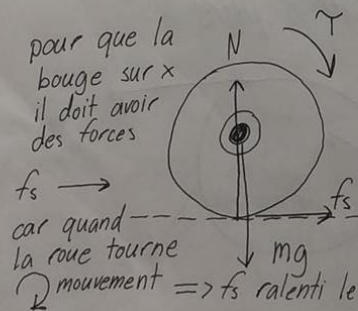 pour que la
bouge sur x
il doit avoir
des forces
fs →
car quand
la roue tourne
mouvement => fs ralenti le
N
τ
fs
mg